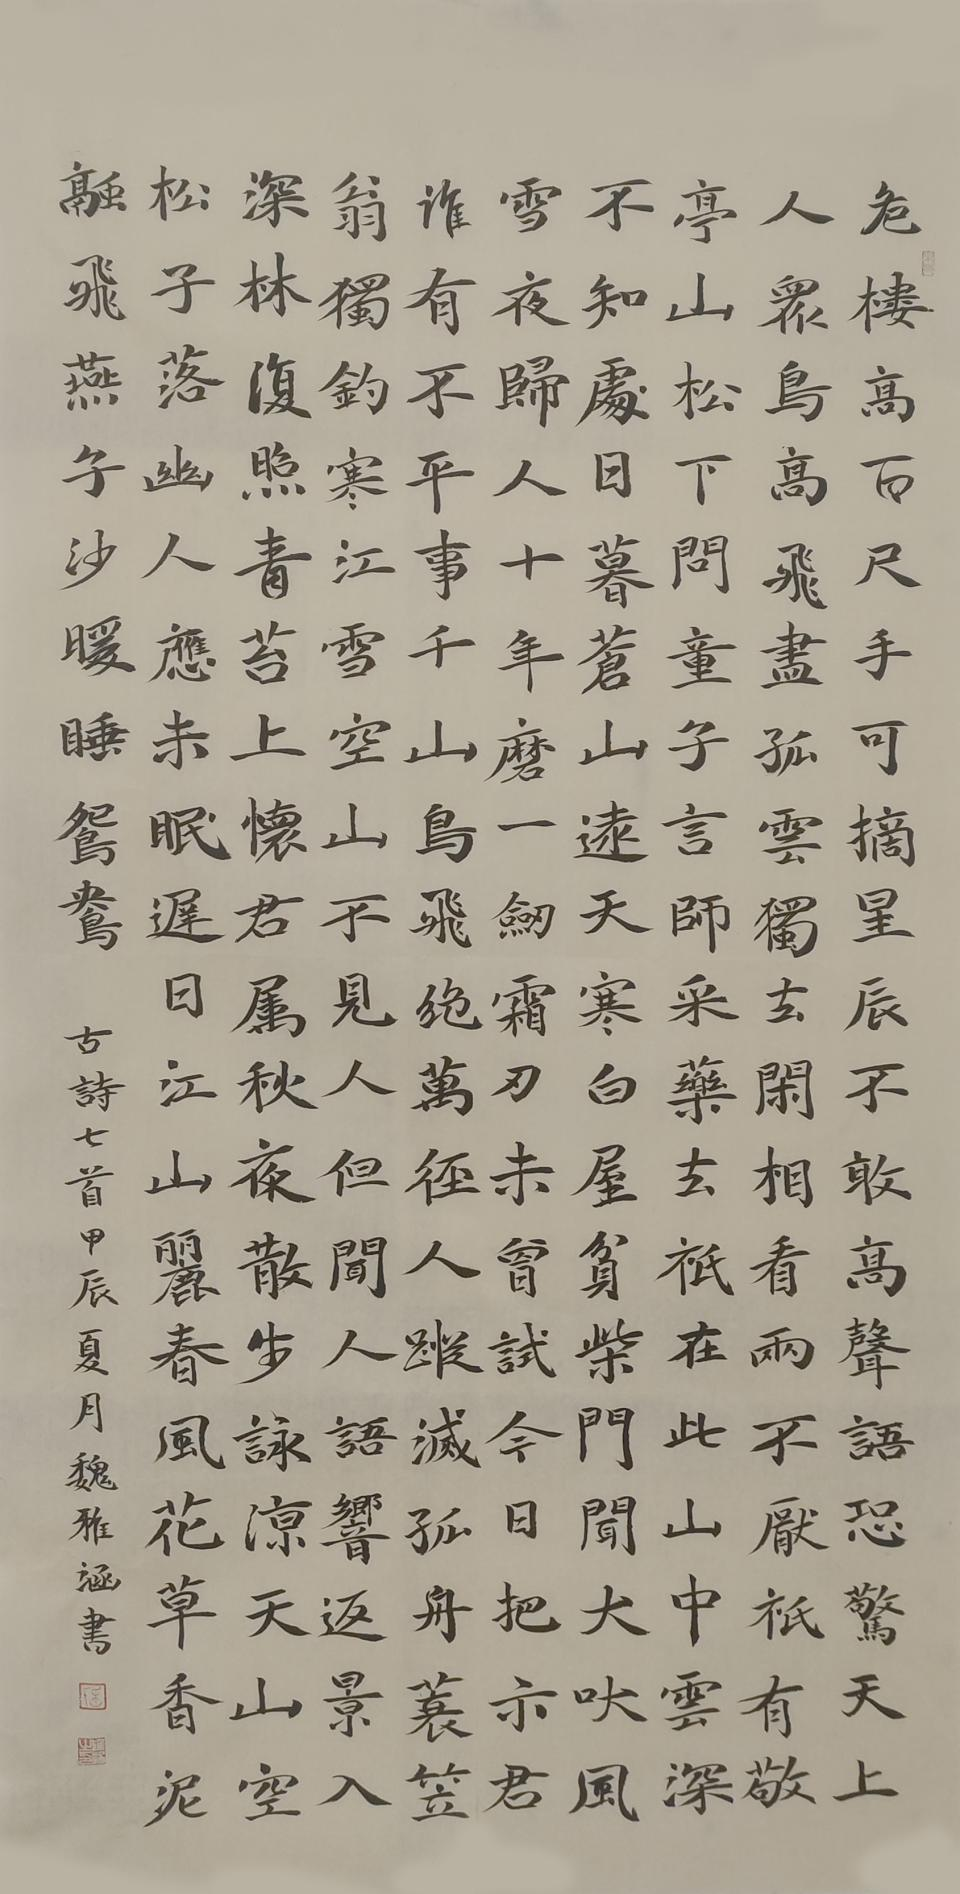 危樓高百尺手可摘星辰不敢高聲語恐驚天上
人眾鳥高飛盡孤雲獨去閑相看兩不厭祇有敬
亭山松下問童子言師采藥去祇在此山中雲深
不知處日暮蒼山遠天寒白屋貧柴門聞犬吠風
雪夜歸人十年磨一劒霜刃未曾試今日把示君
誰有不平事千山鳥飛絕萬徑人蹤滅孤舟蓑笠
翁獨釣寒江雪空山不見人但聞人語響返景入
深林復照青苔上懷君屬秋夜散步詠涼天山空
松子落幽人應未眠遲日江山麗春風花草香泥
融飛燕子沙暖睡鴛鴦
古詩七首甲辰夏月魏雅涵書